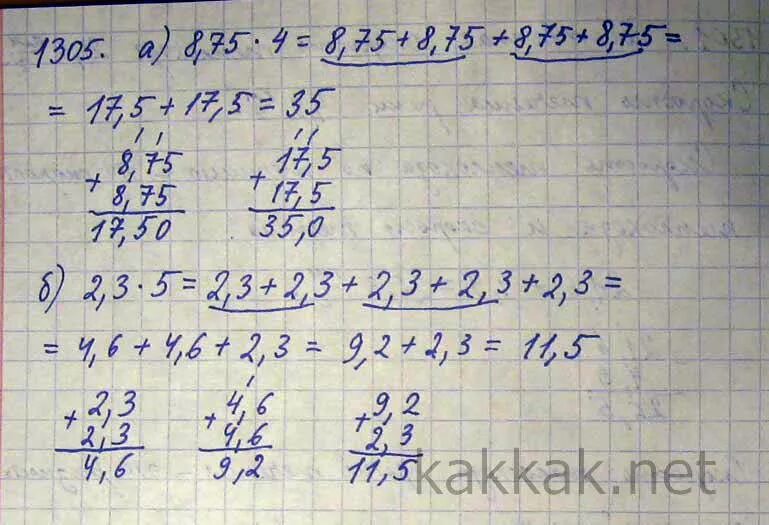 1305. а) 8,75 · 4 = 8,75 + 8,75 + 8,75 + 8,75 =
= 17,5 + 17,5 = 35
+ 8,75 + 17,5
8,75 17,5
17,50 35,0
б) 2,3 · 5 = 2,3 + 2,3 + 2,3 + 2,3 + 2,3 =
= 4,6 + 4,6 + 2,3 = 9,2 + 2,3 = 11,5
+ 2,3 + 4,6 + 9,2
2,3 4,6 2,3
4,6 9,2 11,5
kakkak.net